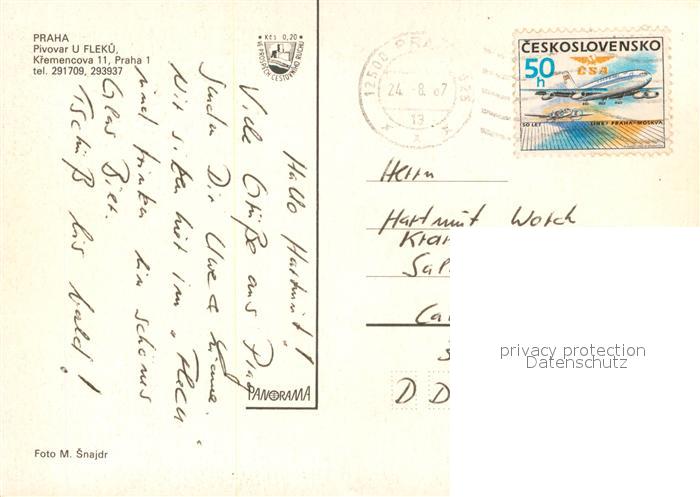 PRAHA
Pivovar U FLEKŮ,
Křemencova 11, Praha 1
tel. 291709, 293937
Kčs 0,20
VE PROSPĚCH CESTOVNÍHO RUCHU
Hallo Hartmut!
Viele Grüße aus Prag
Senden Dir Uwe &
Wir sitzen hier im „Fleku“
und trinken ein schönes
Glas Bier.
Tschüß bis bald!
PANORAMA
Foto M. Šnajdr
12500 PRA
24.-8. 87
13
ČESKOSLOVENSKO
50 h
ČSA
50 LET LINKY PRAHA-MOSKVA
Herrn
Hartmut Worch
D D
privacy protection
Datenschutz